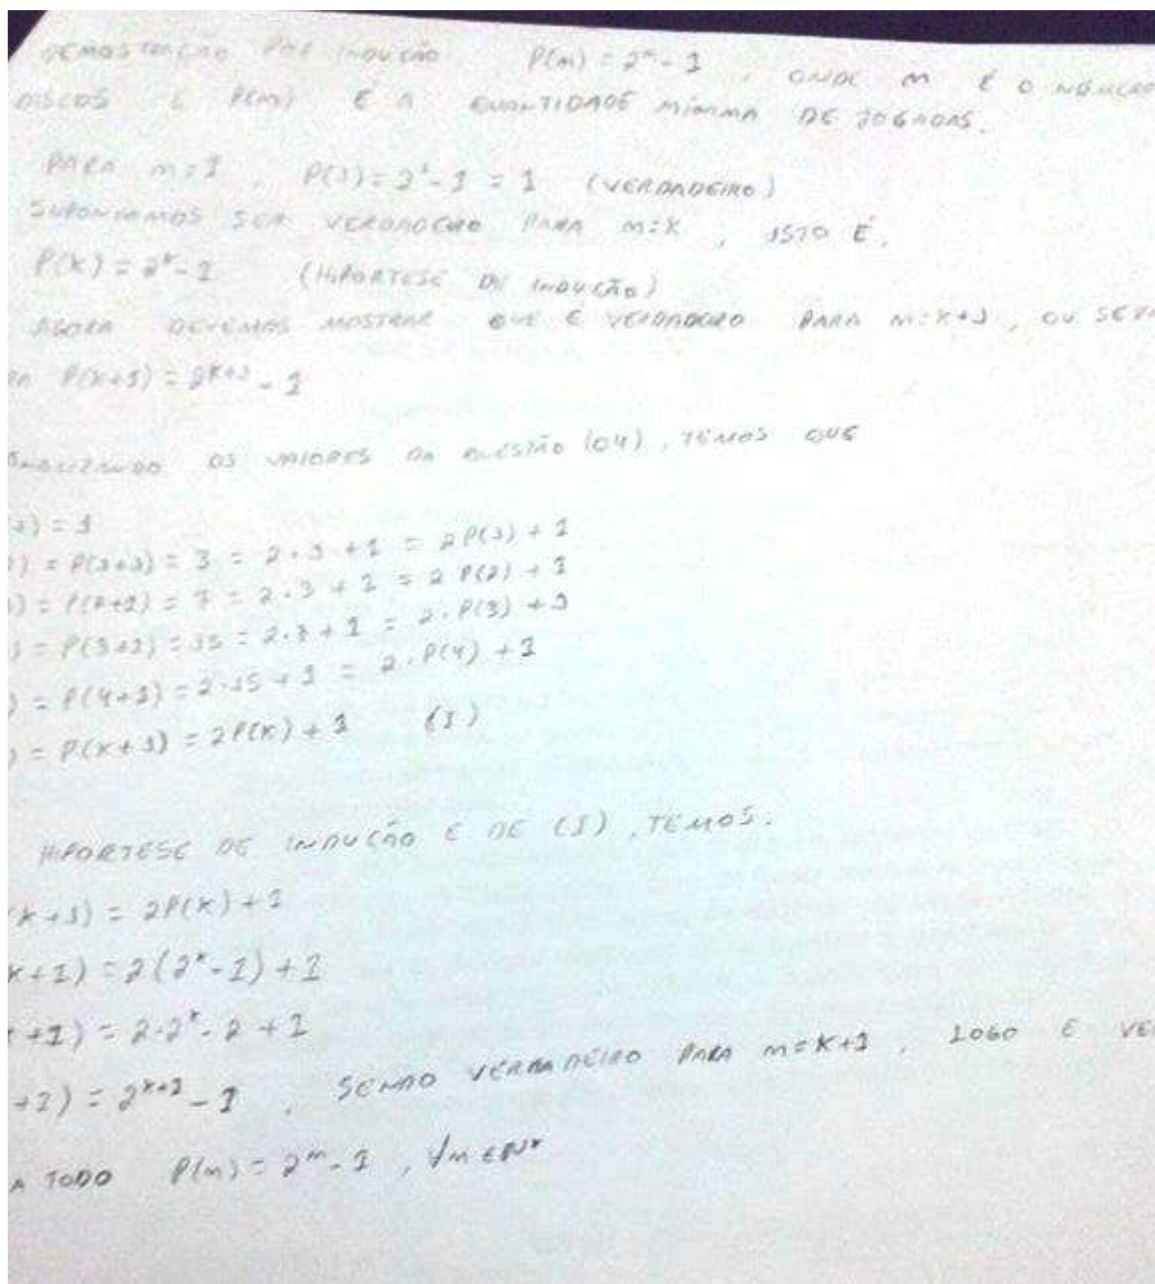 DEMOSTRAÇÃO POR INDUÇÃO P(m) = 2^m - 1 , ONDE m É O NÚMERO
DISCOS E P(m) É A QUANTIDADE MÍNIMA DE JOGADAS.
PARA m=1 , P(1) = 2^1 - 1 = 1 (VERDADEIRO)
SUPONHAMOS SER VERDADEIRO PARA m=K , ISTO É,
P(K) = 2^K - 1 (HIPORTESE DE INDUÇÃO)
AGORA DEVEMOS MOSTRAR QUE É VERDADEIRO PARA m=K+1 , OU SEJA
P(K+1) = 2^{K+1} - 1
OS VALORES DA QUESTÃO (04) , TEMOS QUE
) = 1
) = P(1+1) = 3 = 2.1 + 1 = 2P(1) + 1
) = P(2+1) = 7 = 2.3 + 1 = 2 P(2) + 1
) = P(3+1) = 15 = 2.7 + 1 = 2.P(3) + 1
) = P(4+1) = 2.15 + 1 = 2.P(4) + 1
) = P(K+1) = 2P(K) + 1 (I)
HIPORTESE DE INDUÇÃO E DE (I) , TEMOS.
K+1) = 2P(K) + 1
K+1) = 2(2^K - 1) + 1
+1) = 2.2^K - 2 + 1
+1) = 2^{K+1} - 1 , SENDO VERDADEIRO PARA m=K+1 , LOGO É VE
A TODO P(m) = 2^m - 1 , ∀m∈N*